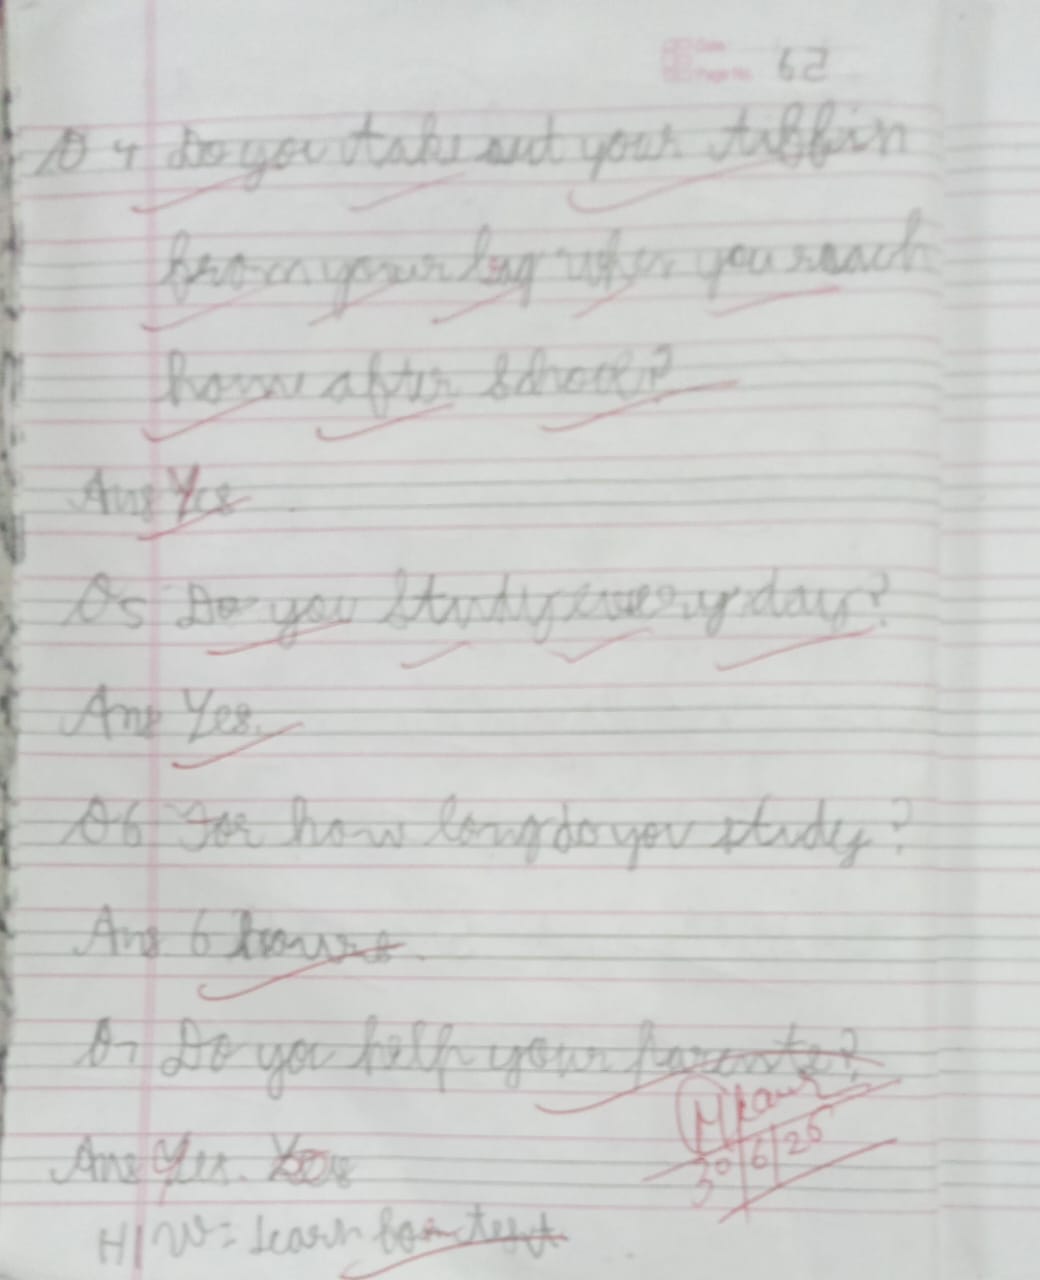 Date
Page No. 62
Q 4 Do you take out your tiffin
from your bag when you reach
home after School?
Ans Yes
Q5 Do you Study every day?
Ans Yes.
Q6 For how long do you study?
Ans 6 hours.
Q7 Do you help your parents?
Mkaur
30/6/25
Ans Yes. Yes
H/W = Learn for test